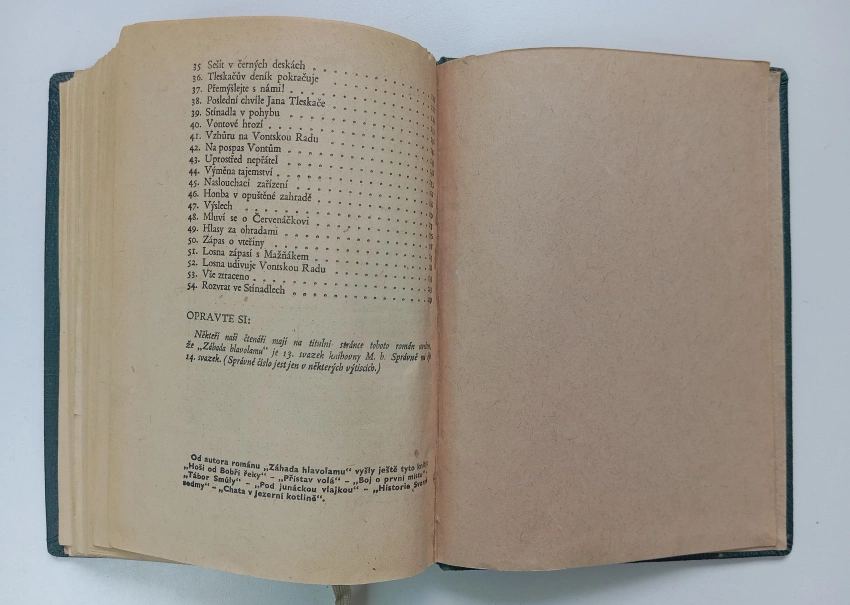 35 Sešit v černých deskách
36. Tleskačův deník pokračuje
37. Přemýšlejte s námi!
38. Poslední chvíle Jana Tleskače
39. Stínadla v pohybu
40. Vontové hrozí
41. Vzhůru na Vontskou Radu
42. Na pospas Vontům
43. Uprostřed nepřátel
44. Výměna tajemství
45. Naslouchací zařízení
46. Honba v opuštěné zahradě
47. Výslech
48. Mluví se o Červenáčkovi
49. Hlasy za ohradami
50. Zápas o vteřiny
51. Losna zápasí s Mažňákem
52. Losna udivuje Vontskou Radu
53. Vše ztraceno
54. Rozvrat ve Stínadlech
OPRAVTE SI:
Někteří naši čtenáři mají na titulní stránce tohoto román
že „Záhada hlavolamu" je 13. svazek knihovny M. h. Správně
14. svazek. (Správné číslo jest jen v některých výtiscích.)
Od autora románu „Záhada hlavolamu" vyšly ještě tyto
„Hoši od Bobří řeky" – „Přístav volá" – „Boj o první místo"
„Tábor Smůly" – „Pod junáckou vlajkou" – „Historie
sedmy" – „Chata v Jezerní kotlině".